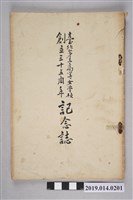 臺北第三高等女學校
創立三十五周年
記念誌
2019.014.0201